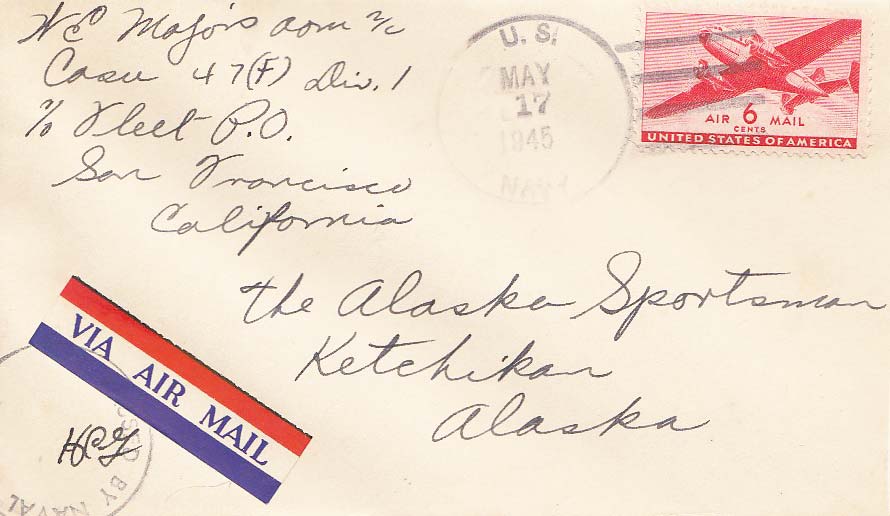 W E Majors aom 2/c
Casu 47(F) Div. 1
c/o Fleet P.O.
San Francisco
California
U.S.
MAY
17
1945
NAVY
AIR 6 MAIL
CENTS
UNITED STATES OF AMERICA
The Alaska Sportsman
Ketchikan
Alaska
VIA AIR MAIL
BY NAVAL